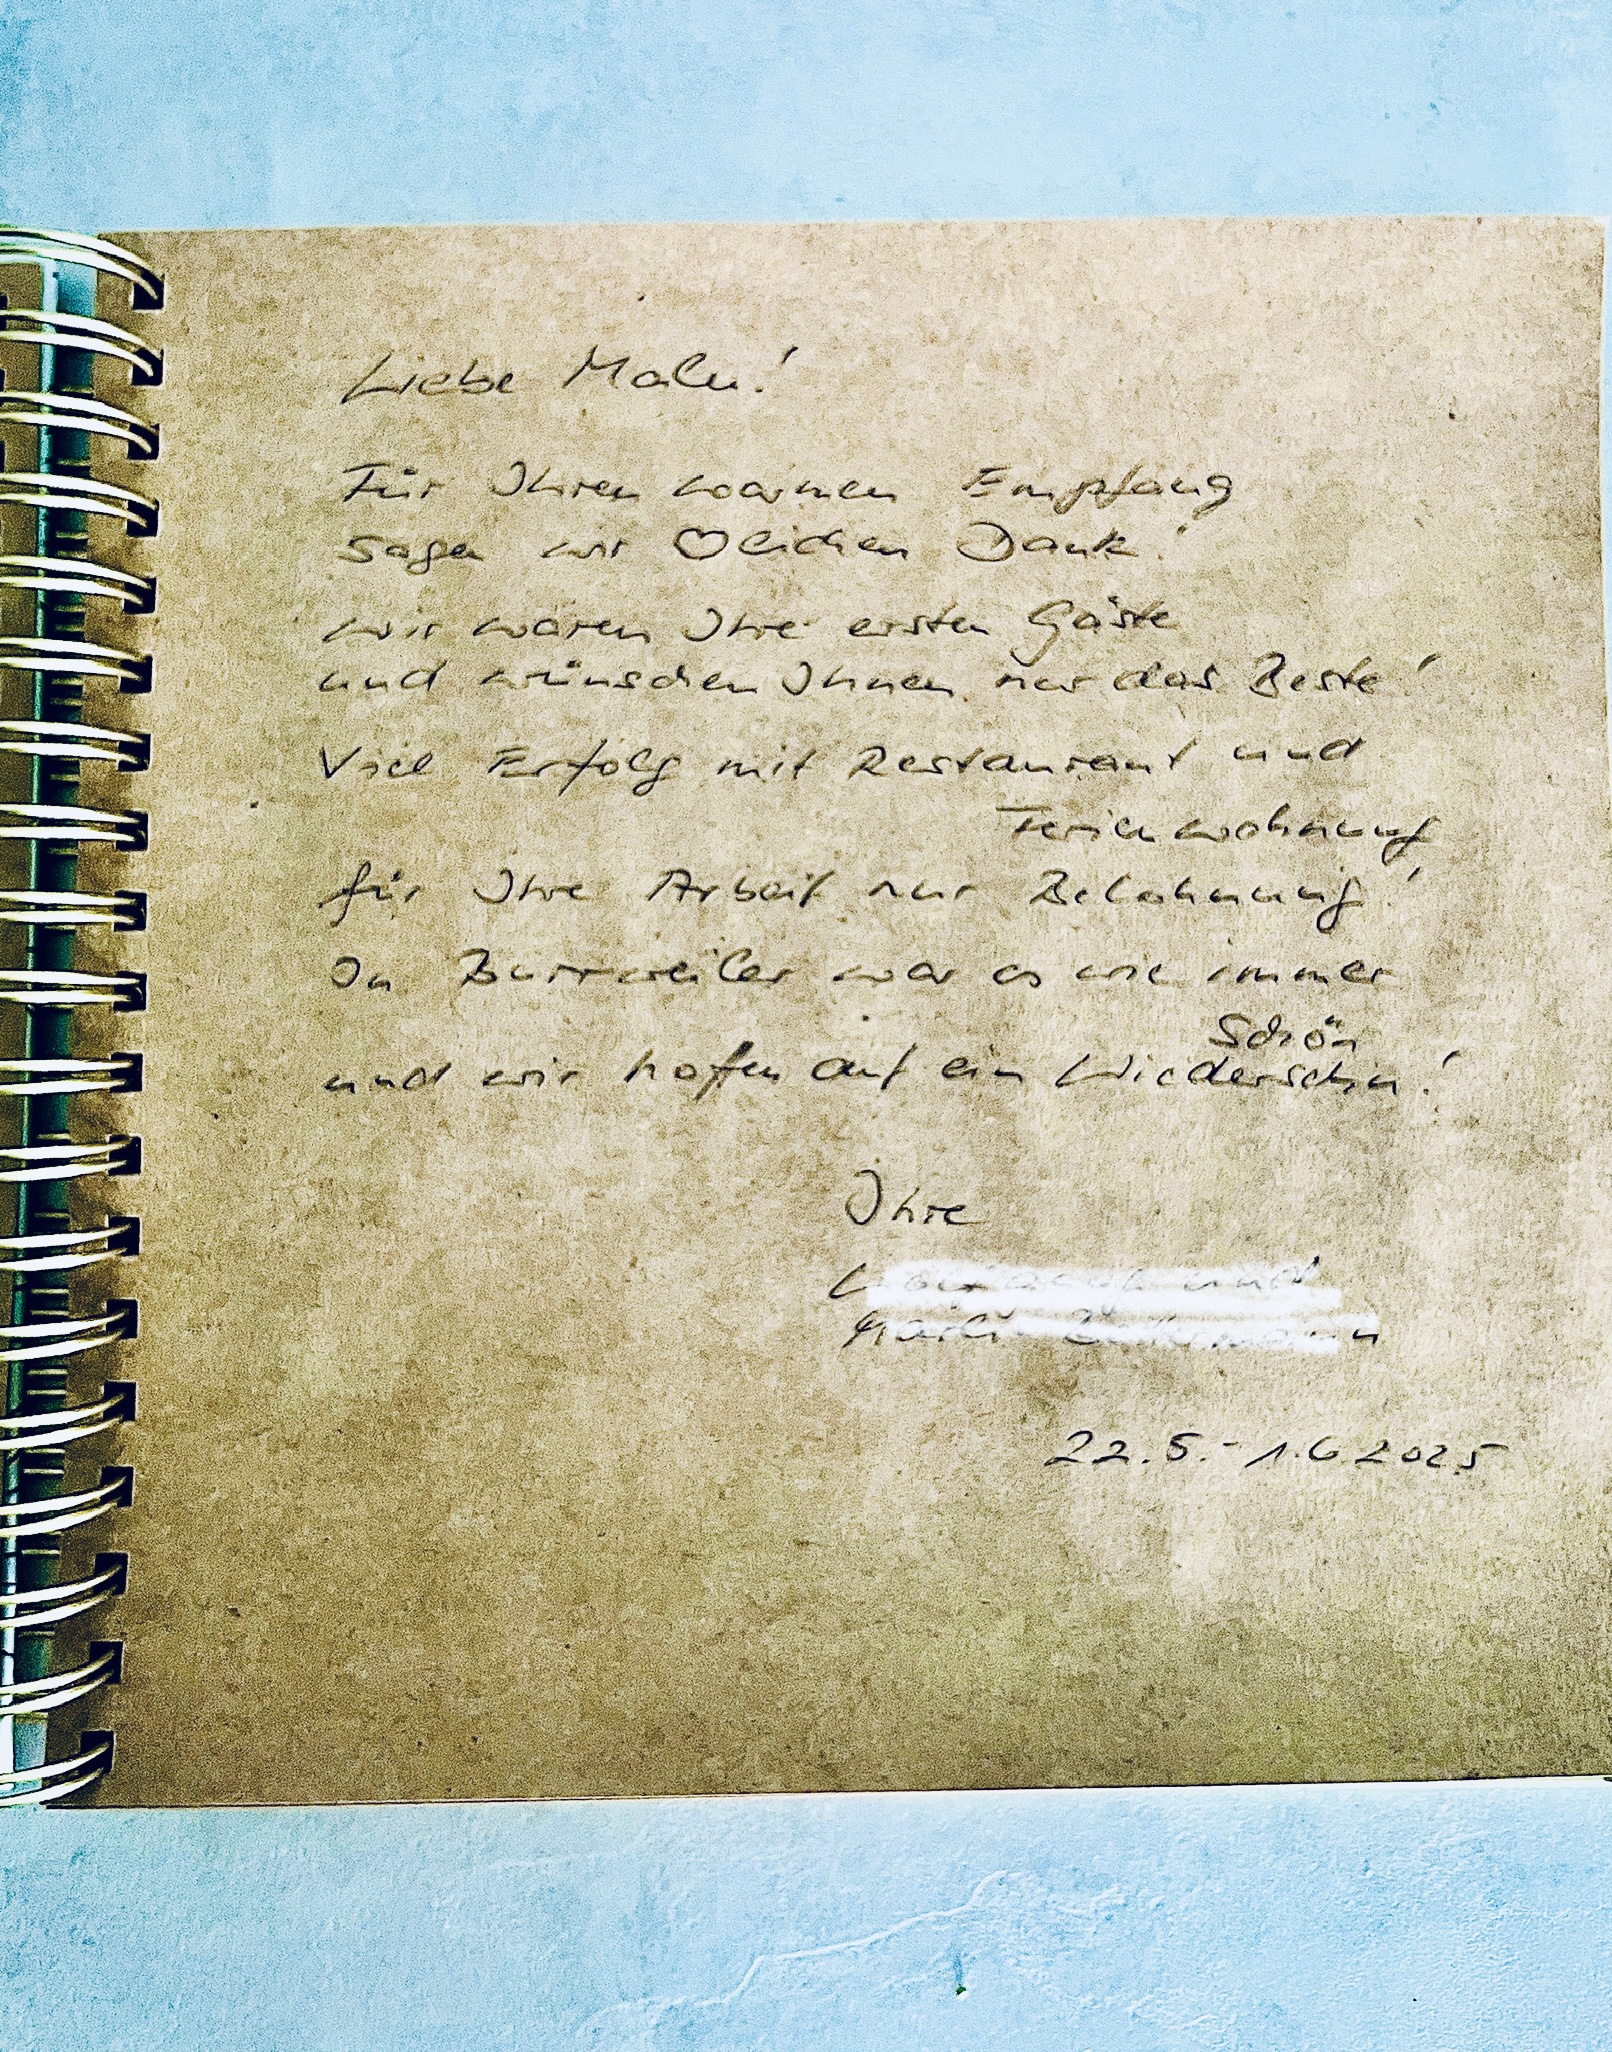 Liebe Malu!
Für Ihren warmen Empfang
sagen wir ♡lichen Dank!
wir waren Ihre ersten Gäste
und wünschen Ihnen nur das Beste!
Viel Erfolg mit Restaurant und
Ferienwohnung
für Ihre Arbeit nur Belohnung!
In Burrweiler war es wie immer
Schön
und wir hoffen auf ein Wiedersehn!
Ihre
22.5.-1.6.2025